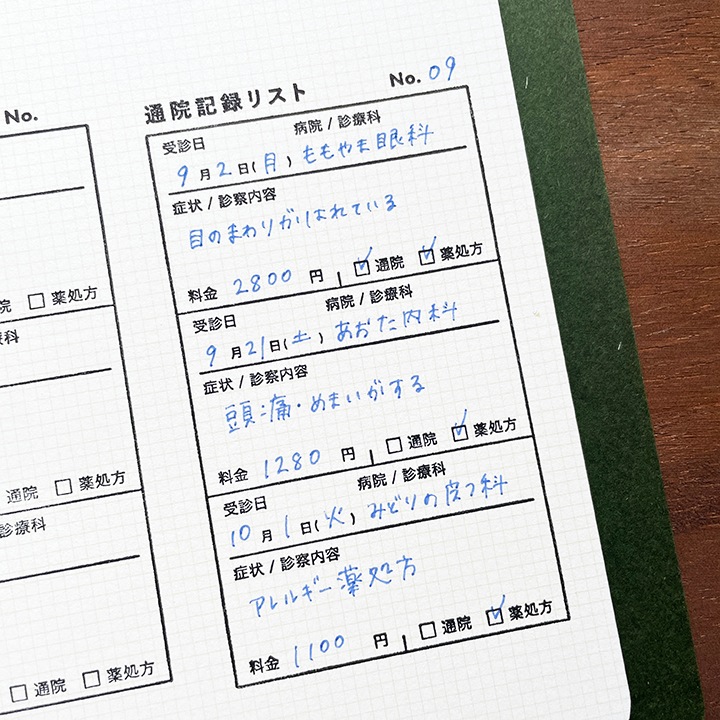 No.
院 □ 薬処方
科
通院 □ 薬処方
診療科
□ 通院 □ 薬処方
通院記録リスト No. 09
受診日 病院 / 診療科
9 月 2 日(月) ももやま眼科
症状 / 診察内容
目のまわりがはれている
料金 2800 円 ☑ 通院 ☑ 薬処方
受診日 病院 / 診療科
9 月 21 日(土) あおた内科
症状 / 診察内容
頭痛・めまいがする
料金 1280 円 □ 通院 ☑ 薬処方
受診日 病院 / 診療科
10 月 1 日(火) みどりの皮フ科
症状 / 診察内容
アレルギー薬処方
料金 1100 円 □ 通院 ☑ 薬処方